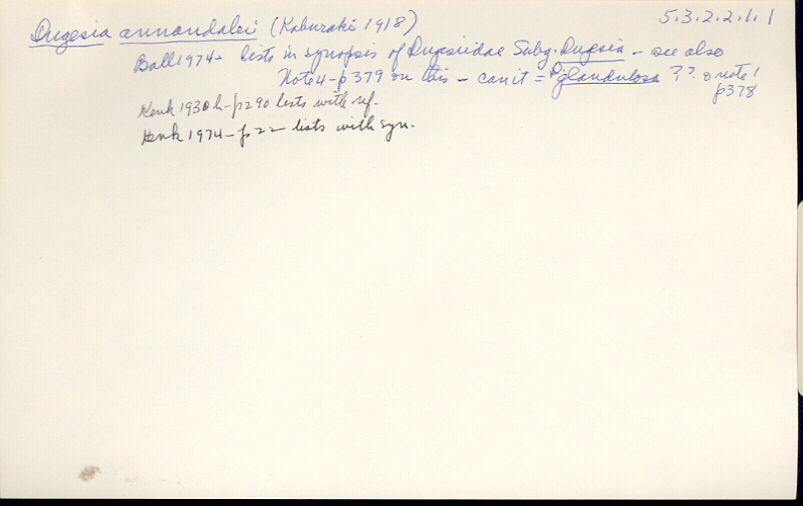 Dugesia annandalei (Kaburaki 1918) 5.3.2.2.1.1
Ball 1974 - lists in synopsis of Dugesiidae Subg. Dugesia - see also
Note 4 - p 379 on this - can it = P. glandulosa ?? note!
p378
Kenk 1930 b - p290 lists with ref.
Kenk 1974 - p 22 lists with syn.